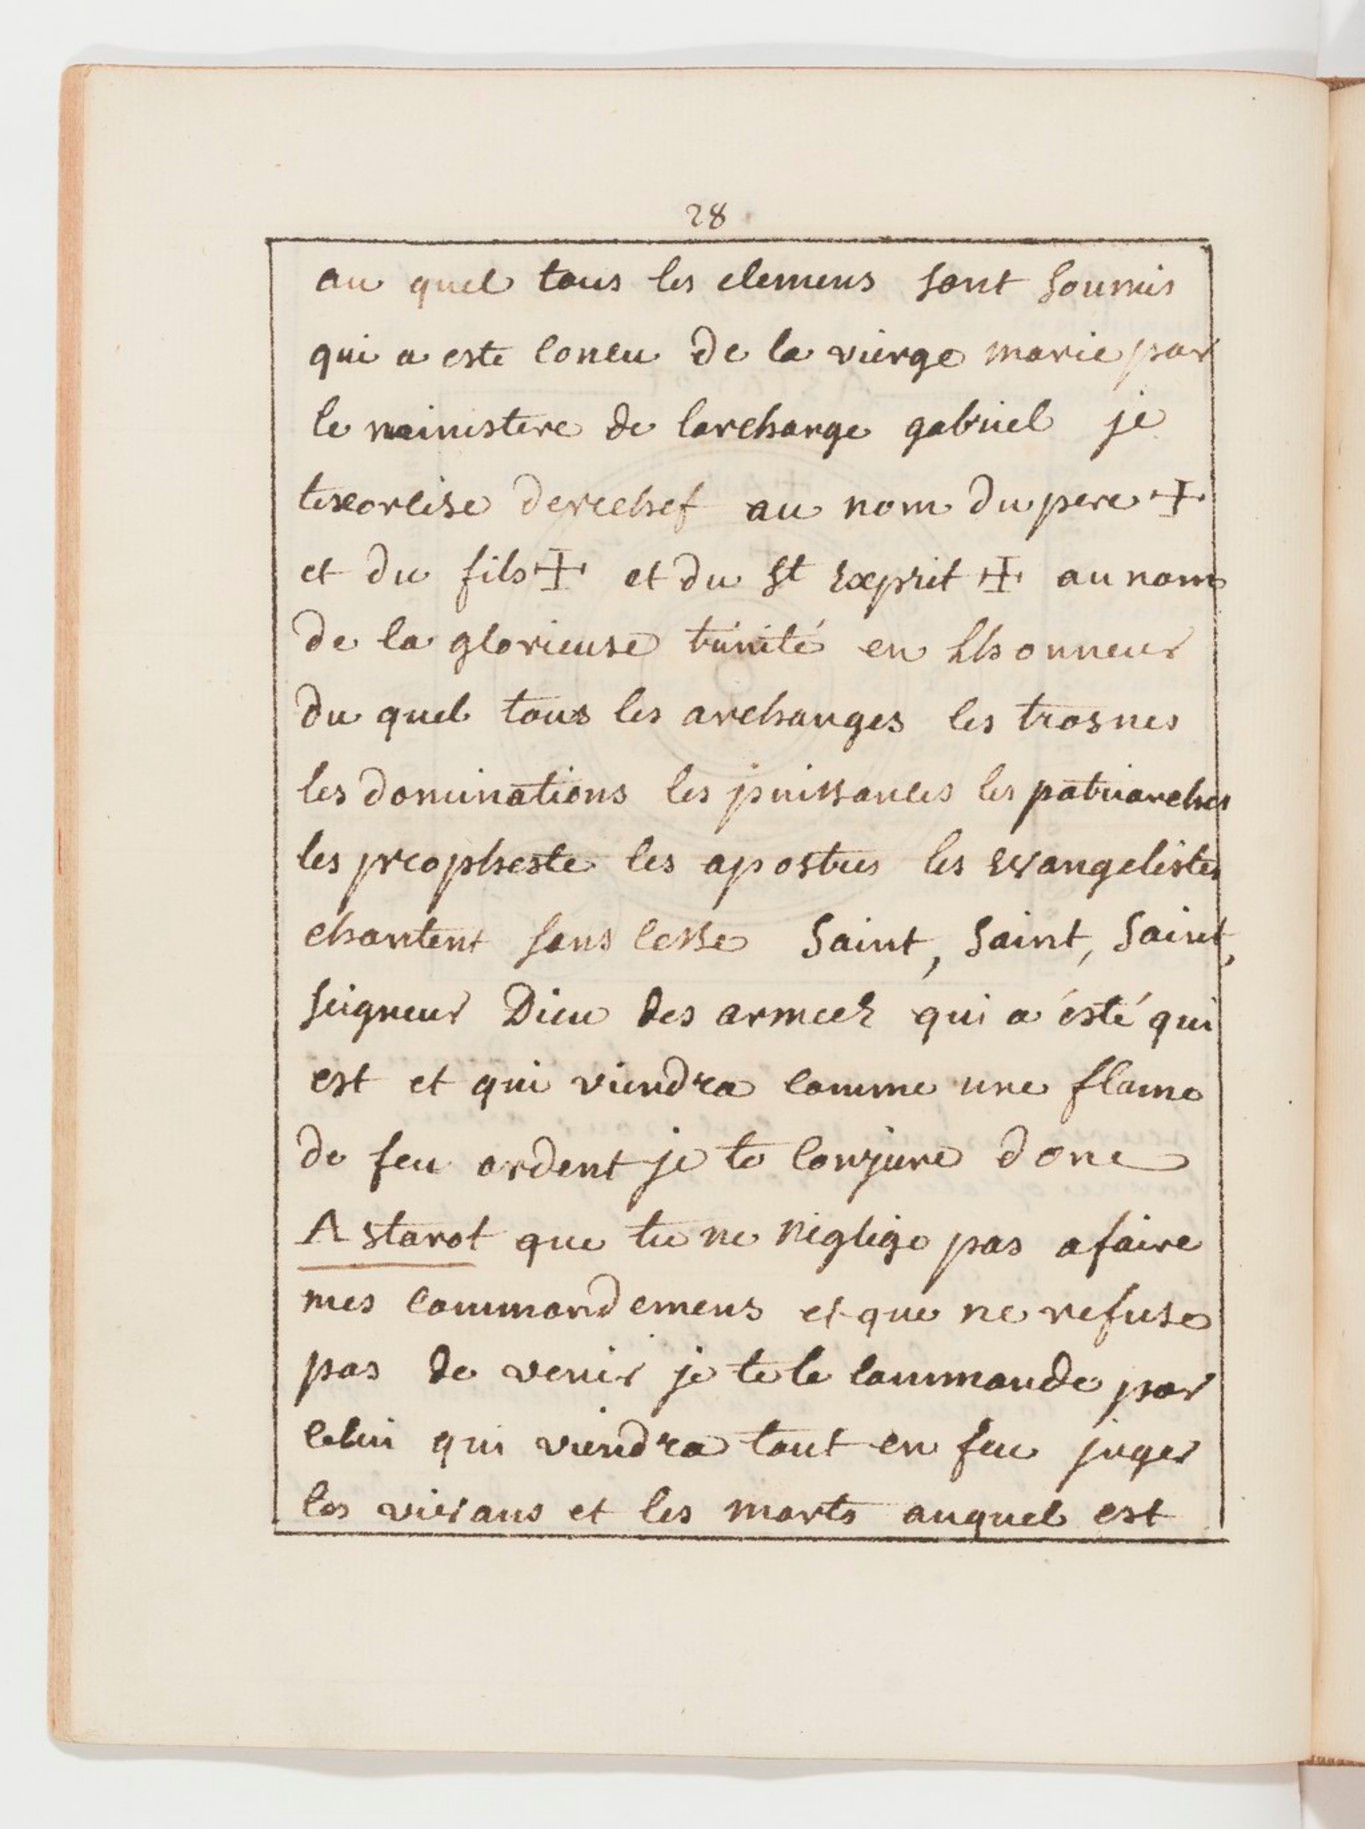 28
au quel tous les elemens sont soumis
qui a este concu de la vierge marie par
le ministere de larchange gabriel je
texorcise derechef au nom du pere ✠
et du fils ✠ et du St Esprit ✠ au nom
de la glorieuse trinité en Lhonneur
du quel tous les archanges les trosnes
les dominations les puissances les patriarches
les propheste les apostres les evangelistes
chantent sans cesse Saint, Saint, Saint,
seigneur Dieu des armeez qui a ésté qui
est et qui viendra comme une flame
de feu ardent je te conjure donc
Astarot que tu ne neglige pas a faire
mes commandemens et que ne refuse
pas de venir je te le commande par
celui qui viendra tout en feu juger
les vivans et les morts auquel est